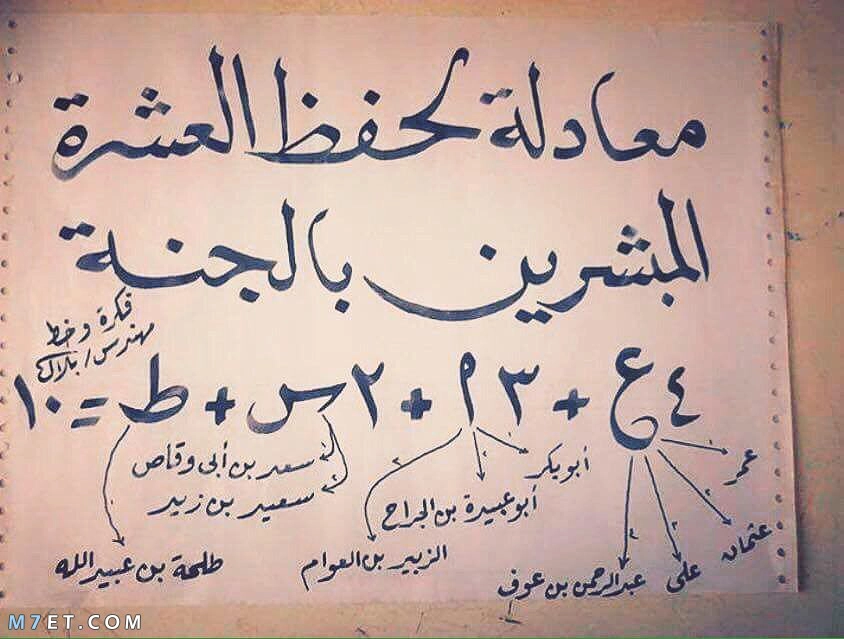 معادلة لحفظ العشرة
المبشرين بالجنة
فكرة وخط
مهندس / بلال
٤ع + ٣م + ٢س + ط = ١٠
عمر
عثمان
علي
عبدالرحمن بن عوف
أبو بكر
أبو عبيدة بن الجراح
الزبير بن العوام
سعد بن أبي وقاص
سعيد بن زيد
طلحة بن عبيد الله
M7ET.COM